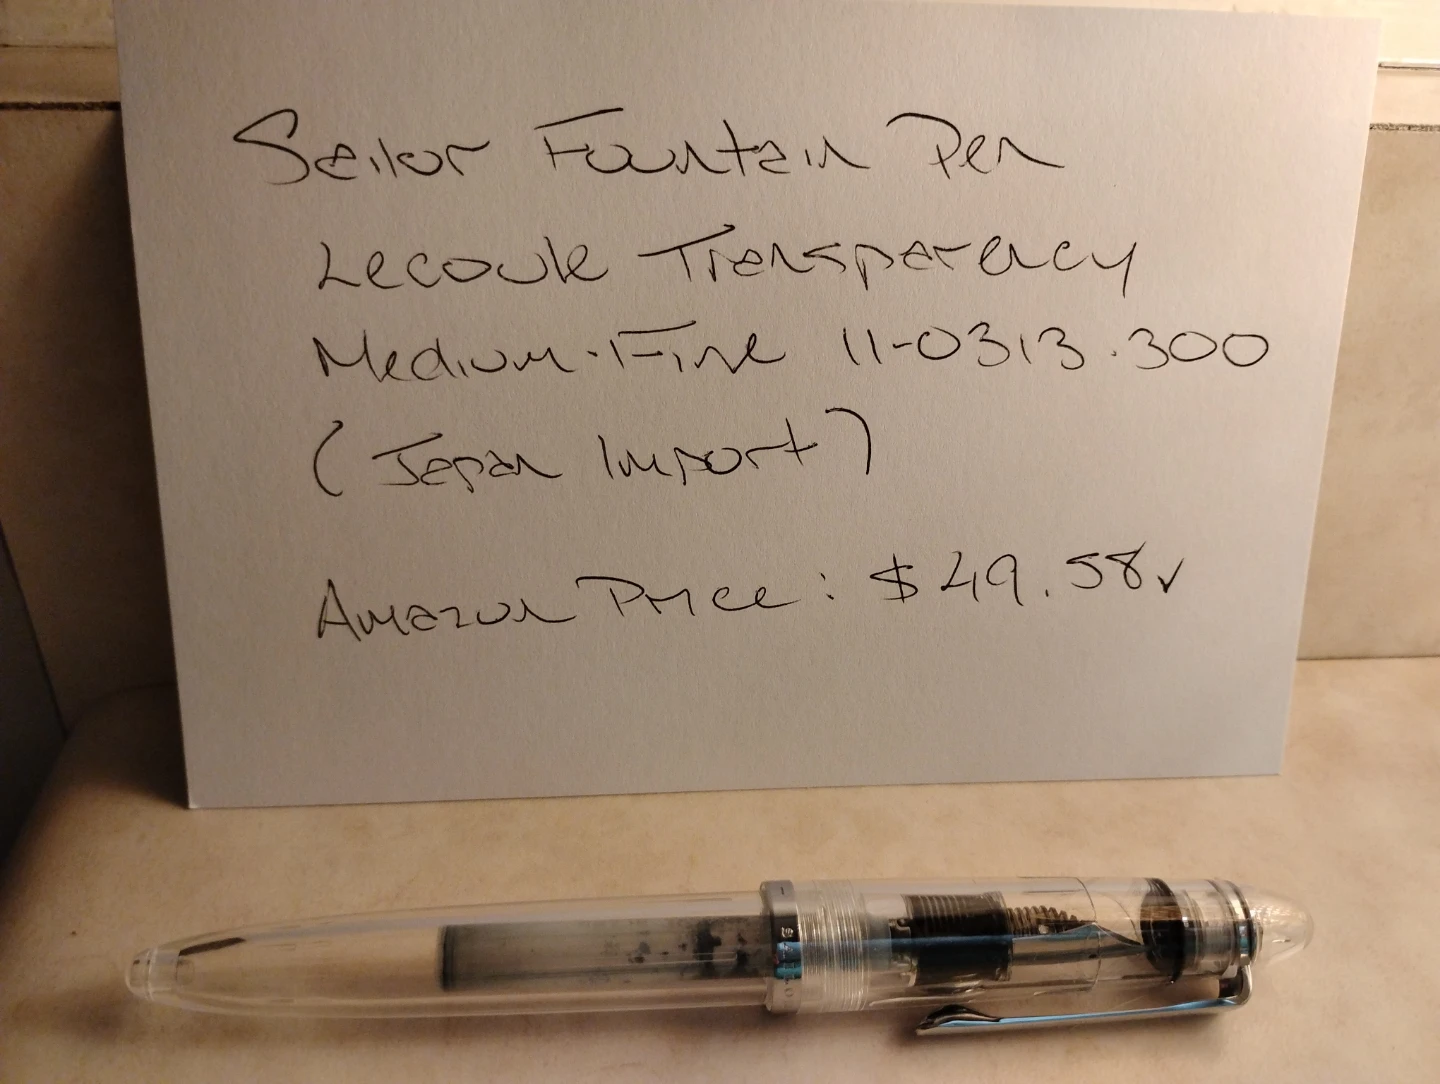 Sailor Fountain Pen
Lecoule Transparency
Medium-Fine 11-0313.300
(Japan Import)
Amazon Price: $49.58✓